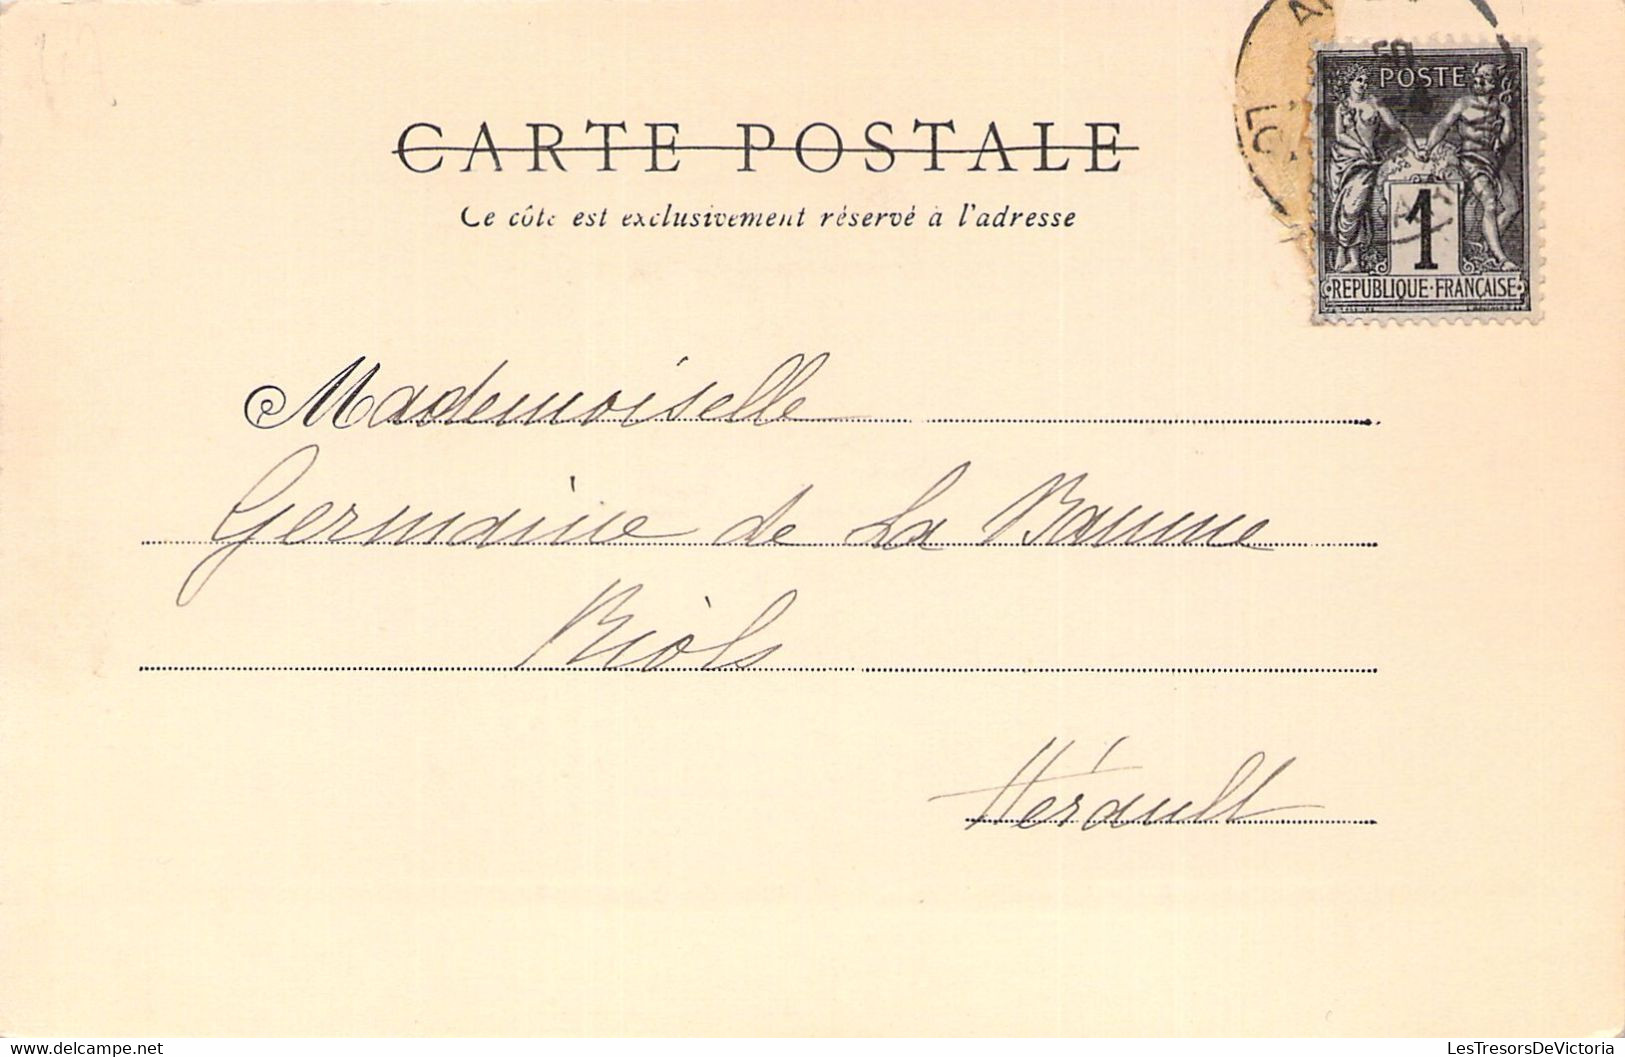 CARTE POSTALE
Ce côté est exclusivement réservé à l'adresse
POSTE
1
REPUBLIQUE·FRANÇAISE
Mademoiselle
Germaine de La Baume
Riols
Hérault
delcampe.net
LesTresorsDeVictoria